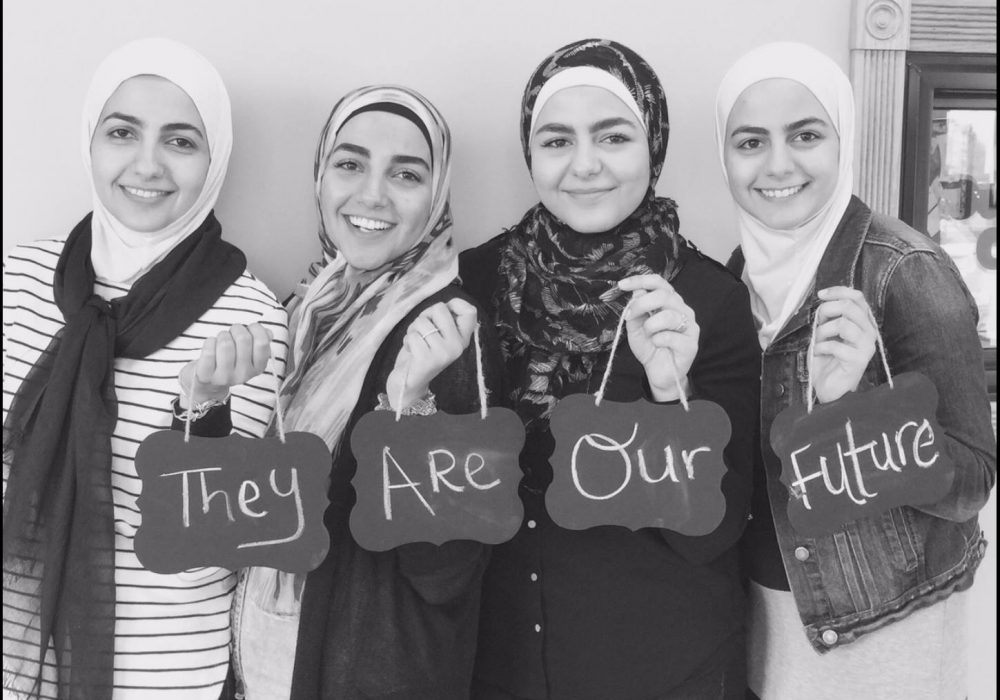 They Are Our Future